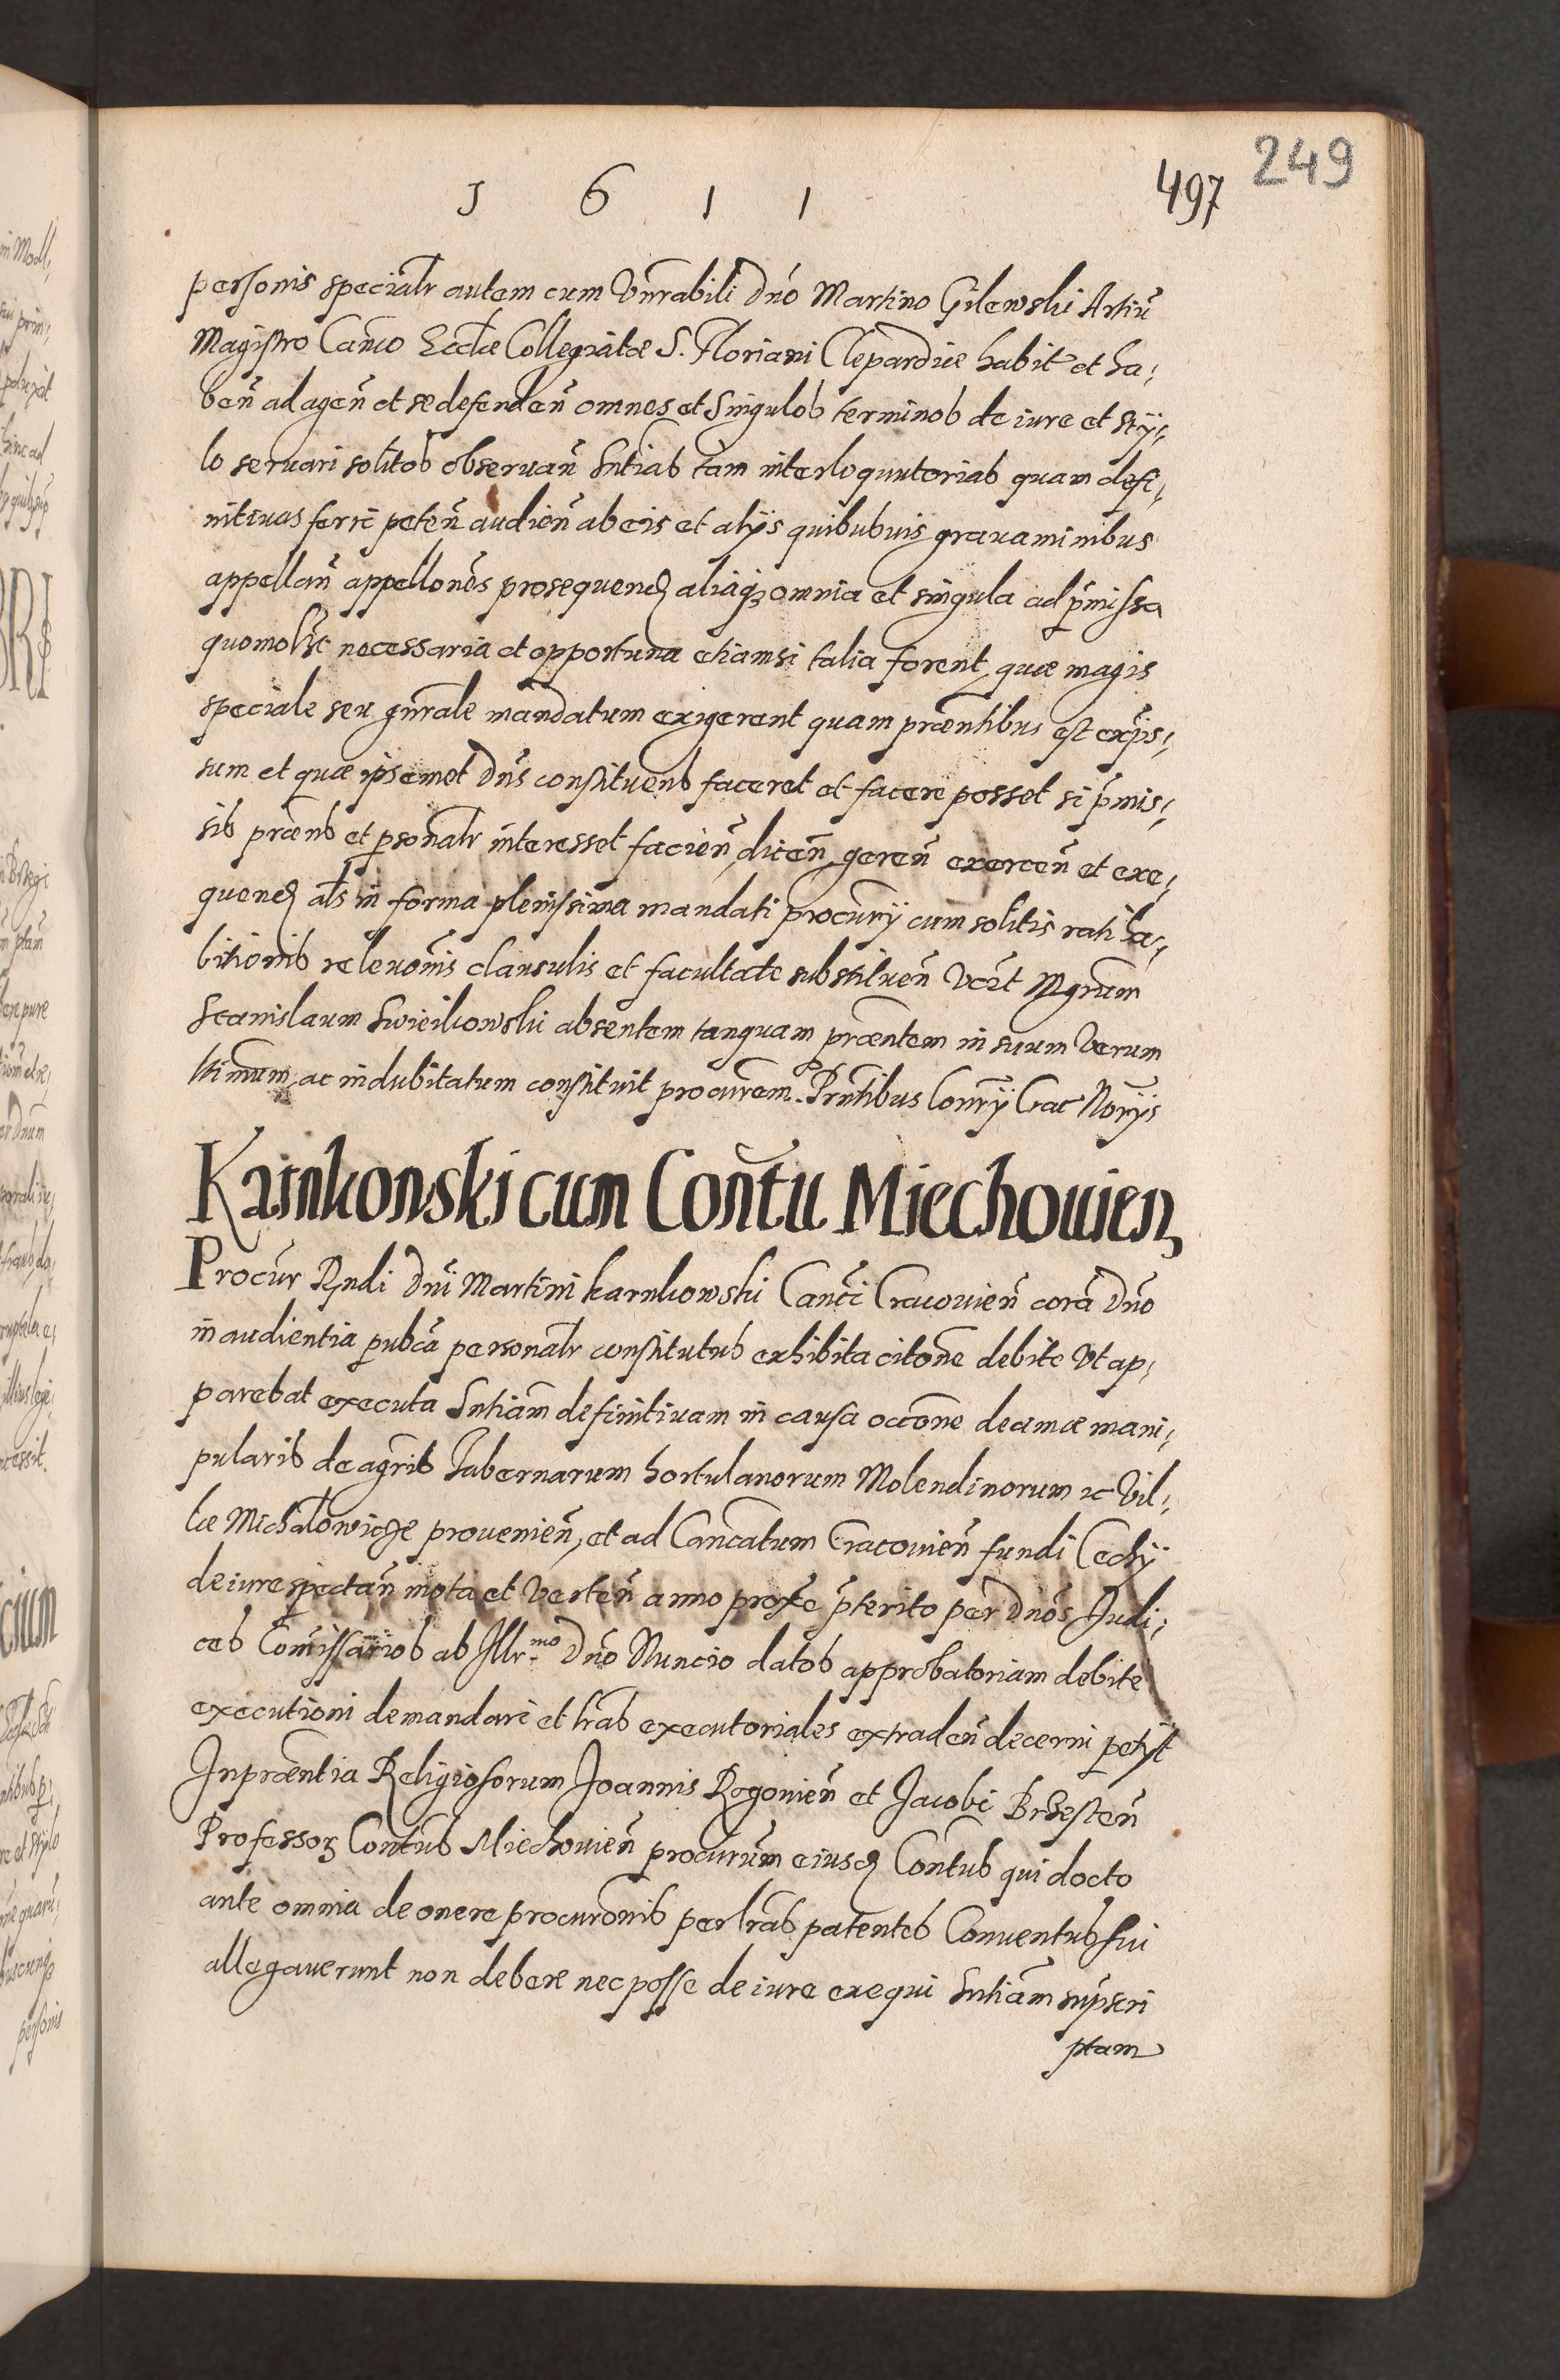 249
1 6 1 1
497
personis specialr autem cum Vnrabili Dno Martino Gilewski Artiũ
Magistro Canco Ecclæ Collegiatæ S. Floriani Clepardiæ habit et ha,
ben̄ ad agen̄ et se defenden̄ omnes et singulos terminos de iure et sty,
lo seruari solitos obseruan̄ Sntias tam interloquutorias quam defi,
nitiuas ferri peten̄ audien̄ ab eis et alijs quibusuis grauaminibus
appellan̄ appellones prosequend aliaq3 omnia et singula ad p̄missa
quomolbt necessaria et opportuna etiamsi talia forent quæ magis
speciale seu gnrale mandatum exigerent quam præntibus est exp̄s,
sum et quæ ipsemet Dns constituens faceret et facere posset si p̄mis,
sis præns et psonalr interesset facien̄ dicen̄ geren̄ exercen̄ et exe,
quend als in forma plenissima mandati procurij cum solitis ratiha,
bitionis releuonis clausulis et facultate substituen̄ Mgrum
Stanislaum Swieikowski absentem tanquam præntem in suum Verum
ltimum, ac indubitatum constituit procurem. Prntibus Conrij Crac Norijs
Karnkonski cum Contu Miechouien
Procur Rndi Dni Martini Karnkowski Canci Cracouien̄ corā Dno
in audientia pubca personalr constitutus exhibita citone debite Vt ap,
parebat executa Sntiam definitiuam in causa occone decimæ mani,
pularis de agris Tabernarum hortulanorum Molendinorum ac Vil,
læ Michałowicze prouenien̄, et ad Cancatum Cracouien̄ fundi Cechÿ
de iure spectan̄ mota et Verten̄ anno proxe p̄terito per Dnos Judi,
ces Comissarios ab Illr.mo Dno Nuncio datos approbatoriam debite
executioni demandari et lras executoriales extraden̄ decerni petijt
In præntia Religiosorum Joannis Rogouien̄ et Jacobi Brzesten̄
Professor Contus Miechouien̄ procurum eiusd Contus qui docto
ante omnia de onere procuronis per lras patentes Conuentus sui
allegauerunt non debere nec posse de iure exequi Sntiam supscri
ptam